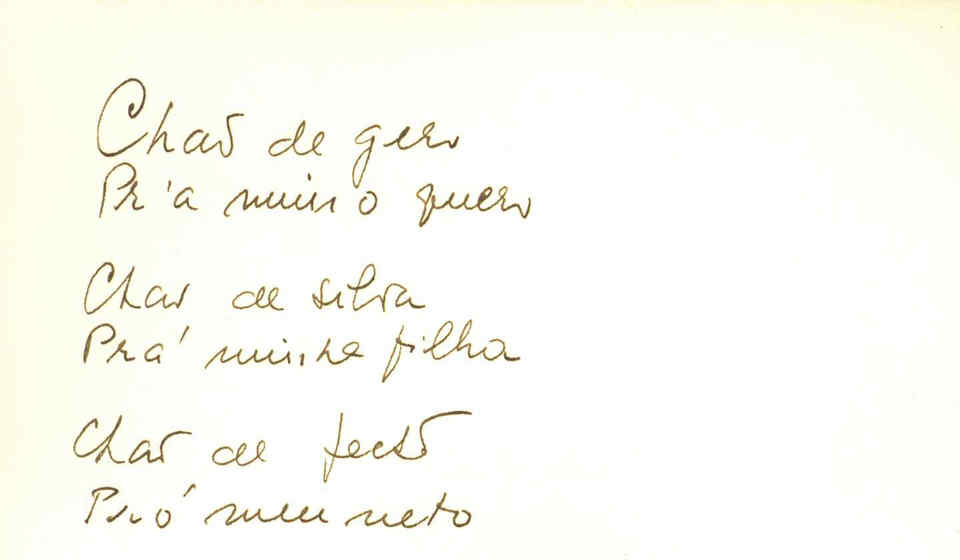 Chaõ de gero
Pr'a mim o quero
Chao de silva
Prá minha filha
Chaõ de feto
Pró meu neto